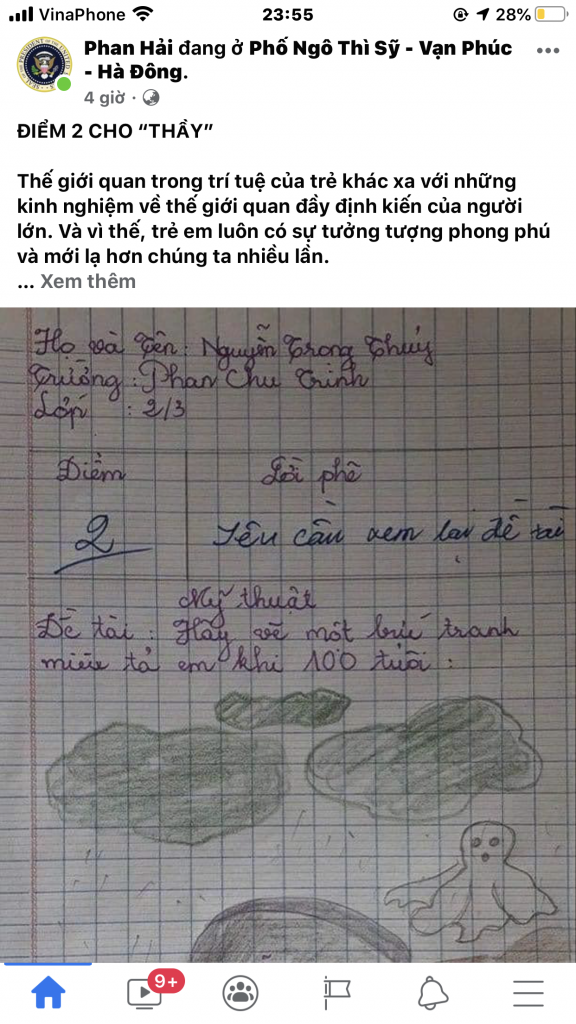 VinaPhone
23:55
28%
Phan Hải đang ở Phố Ngô Thì Sỹ - Vạn Phúc
- Hà Đông.
4 giờ ·
ĐIỂM 2 CHO “THẦY”
Thế giới quan trong trí tuệ của trẻ khác xa với những
kinh nghiệm về thế giới quan đầy định kiến của người
lớn. Và vì thế, trẻ em luôn có sự tưởng tượng phong phú
và mới lạ hơn chúng ta nhiều lần.
... Xem thêm
Họ và Tên: Nguyễn Trong Thuý
Trường: Phan Chu Trinh
Lớp : 2/3
Điểm Lời phê
2 Yêu cầu xem lại đề tài
Mỹ thuật
Đề tài: Hãy vẽ một bức tranh
miêu tả em khi 100 tuổi:
9+